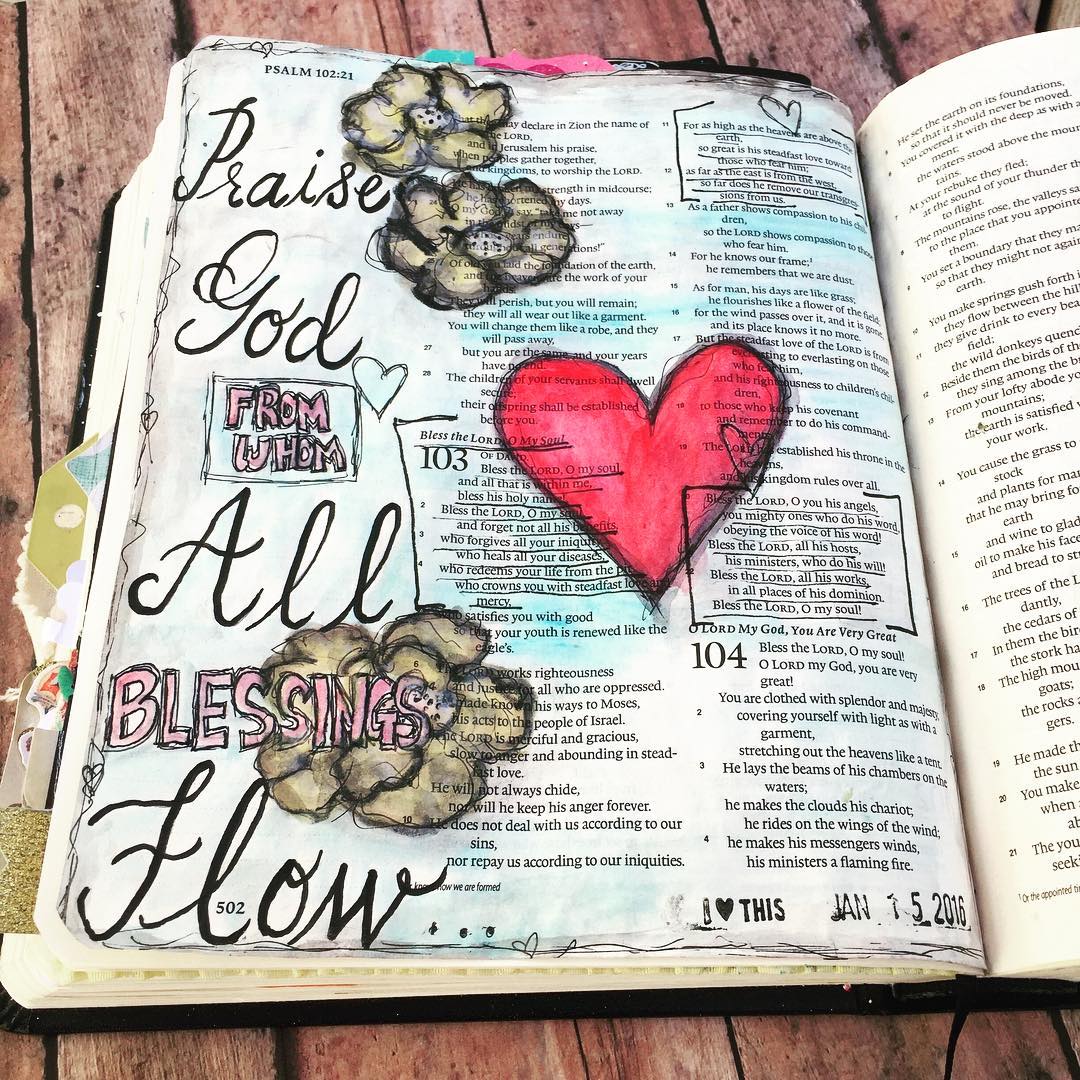 PSALM 102:21
Praise
God
FROM
WHOM
All
BLESSINGS
Flow...
502
may declare in Zion the name of
the LORD,
and in Jerusalem his praise,
when peoples gather together,
and kingdoms, to worship the LORD.
strength in midcourse;
he has shortened my days.
my God," I say, "take me not away
endure
all generations!"
Of old you laid the foundation of the earth,
and the heavens are the work of your
hands.
They will perish, but you will remain;
they will all wear out like a garment.
You will change them like a robe, and they
will pass away,
27 but you are the same, and your years
have no end.
28 The children of your servants shall dwell
secure;
their offspring shall be established
before you.
Bless the LORD, O My Soul
103 OF DAVID.
Bless the LORD, O my soul,
and all that is within me,
bless his holy name!
2 Bless the LORD, O my soul,
and forget not all his benefits,
3 who forgives all your iniquity,
who heals all your diseases,
4 who redeems your life from the pit,
who crowns you with steadfast love and
mercy,
who satisfies you with good
so that your youth is renewed like the
eagle's.
6 The LORD works righteousness
and justice for all who are oppressed.
made known his ways to Moses,
his acts to the people of Israel.
The LORD is merciful and gracious,
slow to anger and abounding in stead-
fast love.
He will not always chide,
nor will he keep his anger forever.
10 He does not deal with us according to our
sins,
nor repay us according to our iniquities.
know how we are formed
11 For as high as the heavens are above the
earth,
so great is his steadfast love toward
those who fear him;
12 as far as the east is from the west,
so far does he remove our transgres-
sions from us.
13 As a father shows compassion to his chil-
dren,
so the LORD shows compassion to those
who fear him.
14 For he knows our frame;
he remembers that we are dust.
15 As for man, his days are like grass;
he flourishes like a flower of the field;
16 for the wind passes over it, and it is gone,
and its place knows it no more.
17 But the steadfast love of the LORD is from
everlasting to everlasting on those
who fear him,
and his righteousness to children's chil-
dren,
18 to those who keep his covenant
and remember to do his command-
ments.
19 The LORD has established his throne in the
heavens,
and his kingdom rules over all.
Bless the LORD, O you his angels,
you mighty ones who do his word,
obeying the voice of his word!
Bless the LORD, all his hosts,
his ministers, who do his will!
22 Bless the LORD, all his works,
in all places of his dominion.
Bless the LORD, O my soul!
O LORD My God, You Are Very Great
104 Bless the LORD, O my soul!
O LORD my God, you are very
great!
You are clothed with splendor and majesty,
2 covering yourself with light as with a
garment,
stretching out the heavens like a tent.
3 He lays the beams of his chambers on the
waters;
he makes the clouds his chariot;
he rides on the wings of the wind;
4 he makes his messengers winds,
his ministers a flaming fire.
I ♥ THIS
JAN 15 2016
He set the earth on its foundations,
so that it should never be moved.
You covered it with the deep as with a
ment;
the waters stood above the moun
7 At your rebuke they fled;
at the sound of your thunder th
to flight.
8 The mountains rose, the valleys sa
to the place that you appointe
them.
9 You set a boundary that they ma
so that they might not again
earth.
10 You make springs gush forth i
they flow between the hill
11 they give drink to every bea
field;
the wild donkeys quenc
12 Beside them the birds of th
they sing among the bra
13 From your lofty abode yo
mountains;
the earth is satisfied w
your work.
14 You cause the grass to
stock
and plants for man
that he may bring fo
earth
15 and wine to glad
oil to make his face
and bread to str
16 The trees of the L
dantly,
the cedars of
17 In them the bir
the stork ha
18 The high mou
goats;
the rocks a
gers.
19 He made th
the sun
20 You make
when
ab
21 The you
seeki
1 Or the appointed tim